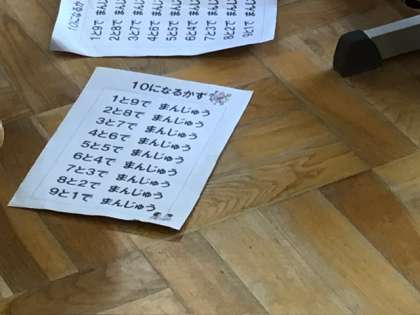 10になるかず
1と9で まんじゅう
2と8で まんじゅう
3と7で まんじゅう
4と6で まんじゅう
5と5で まんじゅう
6と4で まんじゅう
7と3で まんじゅう
8と2で まんじゅう
9と1で まんじゅう
10になるか
1と9で まんじ
2と8で まんじ
3と7で まんじ
4と6で まんじ
5と5で まんじ
6と4で まんじ
7と3で まんじ
8と2で まんじ
9と1で まん